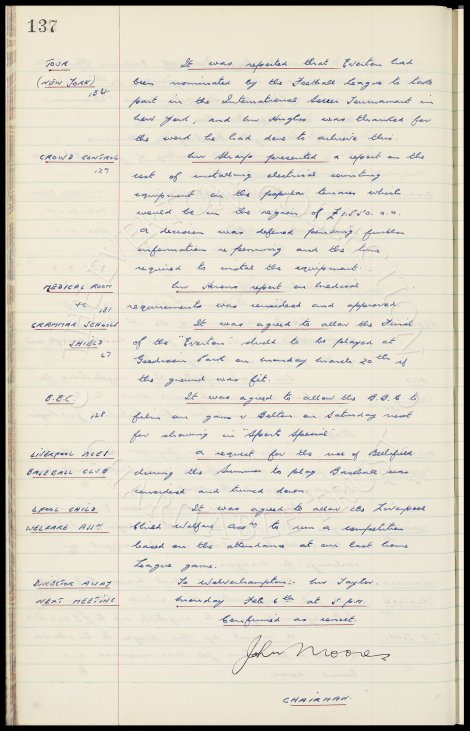 137
TOUR It was reported that Everton had
(NEW YORK) been nominated by the Football League to take
134 part in the International Soccer Tournament in
New York, and Mr Hughes was thanked for
the work he had done to achieve this.
CROWD CONTROL Mr Sharp presented a report on the
127 cost of installing electrical counting
equipment on the popular terraces which
would be in the region of £1550. 0. 0.
A decision was deferred pending further
information re planning and the time
required to instal the equipment.
MEDICAL ROOM Mr report on medical
131 requirements was considered and approved.
GRAMMAR SCHOOLS It was agreed to allow the Final
SHIELD of the "Everton" Shield to be played at
67 Goodison Park on Monday March 20th if
the ground was fit.
B.B.C. It was agreed to allow the B.B.C to
128 film our game v Bolton on Saturday next
for showing in "Sports Special"
LIVERPOOL ACES A request for the use of Bellefield
BASEBALL CLUB during the Summer to play Baseball was
considered and turned down.
LPOOL CHILD It was agreed to allow the Liverpool
WELFARE ASSN. Child Welfare Assn to run a competition
based on the attendance at our last home
League game.
DIRECTOR AWAY To Wolverhampton:- Mr Taylor.
NEXT MEETING Monday Feb 6th at 5 p.m.
Confirmed as correct.
John Moores
CHAIRMAN.